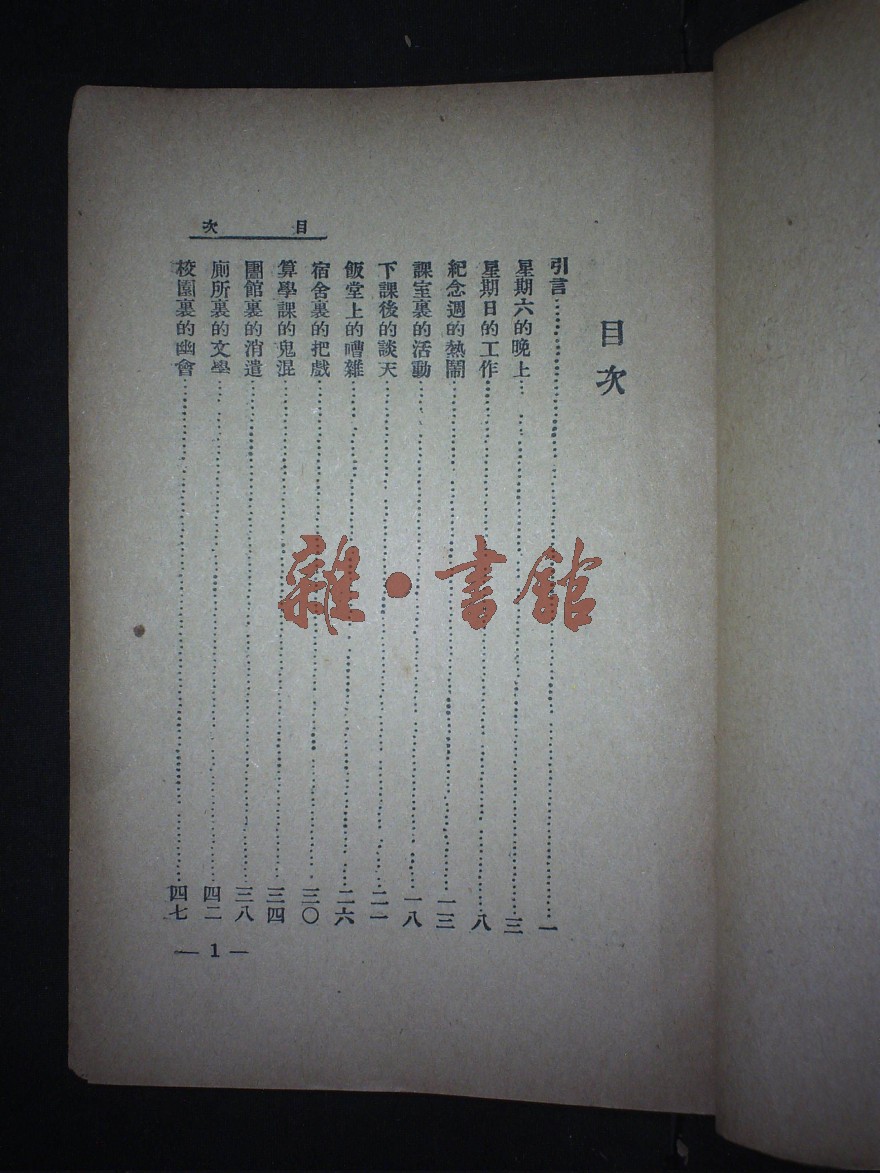 目次
目次
引言……一
星期六的晚上……三
星期日的工作……八
紀念週的熱鬧……一三
課室裏的活動……一八
下課後的談天……二一
飯堂上的嘈雜……二六
宿舍裏的把戲……三〇
算學課的鬼混……三四
圕館裏的消遣……三八
廁所裏的文學……四二
校園裏的幽會……四七
— 1 —
雜·書館